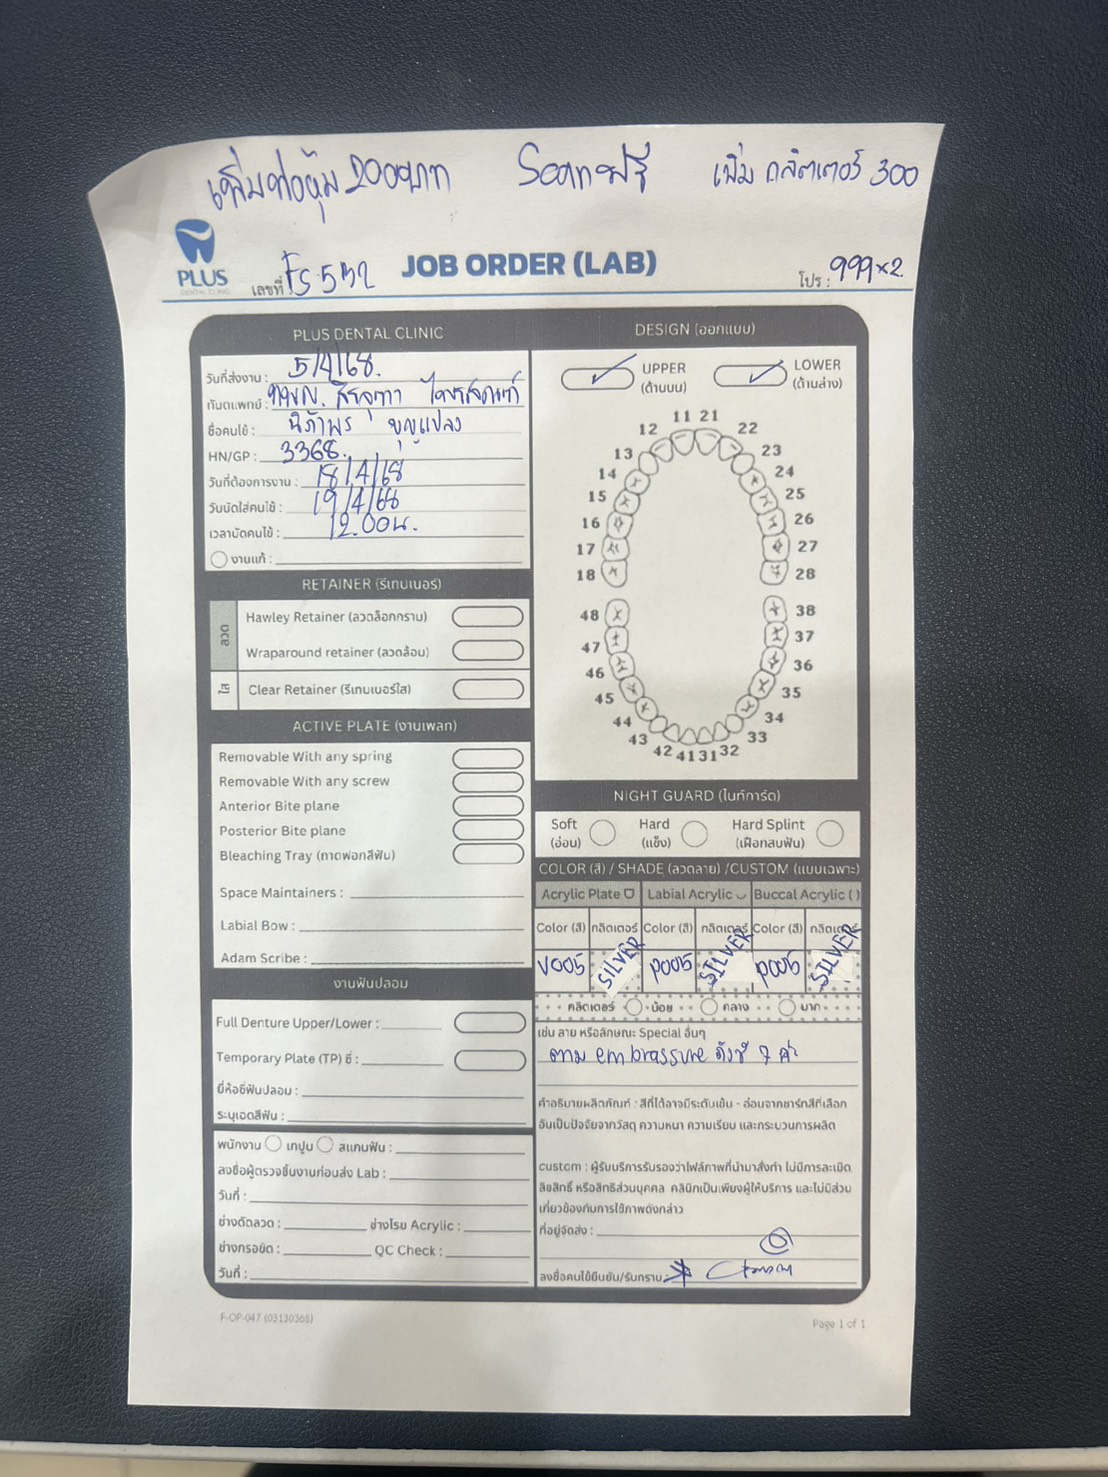 เพิ่มท่อหุ้ม 200บาท Scanฟรี เพิ่ม กลิตเตอร์ 300
PLUS
DENTAL CLINIC
เลขที่
JOB ORDER (LAB)
โปร : 999x2
PLUS DENTAL CLINIC
วันที่ส่งงาน : 5/4/68.
ทันตแพทย์ : ทพญ.
ชื่อคนไข้ : นิภาพร บุญแปลง
HN/GP : 3368.
วันที่ต้องการงาน : 18/4/68
วันนัดใส่คนไข้ : 19/4/68
เวลานัดคนไข้ : 12.00น.
งานแก้ :
RETAINER (รีเทนเนอร์)
ลวด
Hawley Retainer (ลวดล็อกกราม)
Wraparound retainer (ลวดล้อม)
ใส
Clear Retainer (รีเทนเนอร์ใส)
ACTIVE PLATE (งานเพลท)
Removable With any spring
Removable With any screw
Anterior Bite plane
Posterior Bite plane
Bleaching Tray (ถาดฟอกสีฟัน)
Space Maintainers :
Labial Bow :
Adam Scribe :
งานฟันปลอม
Full Denture Upper/Lower :
Temporary Plate (TP) ซี่ :
ยี่ห้อซี่ฟันปลอม :
ระบุเฉดสีฟัน :
พนักงาน เทปูน สแกนฟัน :
ลงชื่อผู้ตรวจชิ้นงานก่อนส่ง Lab :
วันที่ :
ช่างดัดลวด : ช่างโรย Acrylic :
ช่างกรอขัด : QC Check :
วันที่ :
DESIGN (ออกแบบ)
UPPER (ด้านบน)
LOWER (ด้านล่าง)
11 21
12 22
13 23
14 24
15 25
16 26
17 27
18 28
48 38
47 37
46 36
45 35
44 34
43 33
42 41 31 32
NIGHT GUARD (ไนท์การ์ด)
Soft (อ่อน) Hard (แข็ง) Hard Splint (เฝือกสบฟัน)
COLOR (สี) / SHADE (ลวดลาย) /CUSTOM (แบบเฉพาะ)
Acrylic Plate Labial Acrylic Buccal Acrylic ( )
Color (สี) กลิตเตอร์ Color (สี) กลิตเตอร์ Color (สี) กลิตเตอร์
V005 SILVER P005 SILVER P005 SILVER
กลิตเตอร์ น้อย กลาง มาก
เช่น ลาย หรือลักษณะ Special อื่นๆ
ตาม embrassure
คำอธิบายผลิตภัณฑ์ : สีที่ได้อาจมีระดับเข้ม - อ่อนจากชาร์ทสีที่เลือก
อันเป็นปัจจัยจากวัสดุ ความหนา ความเรียบ และกระบวนการผลิต
custom : ผู้รับบริการรับรองว่าไฟล์ภาพที่นำมาสั่งทำ ไม่มีการละเมิด
ลิขสิทธิ์ หรือสิทธิส่วนบุคคล คลินิกเป็นเพียงผู้ให้บริการ และไม่มีส่วน
เกี่ยวข้องกับการใช้ภาพดังกล่าว
ที่อยู่จัดส่ง :
ลงชื่อคนไข้ยืนยัน/รับทราบ
F-OP-047 (03130368)
Page 1 of 1